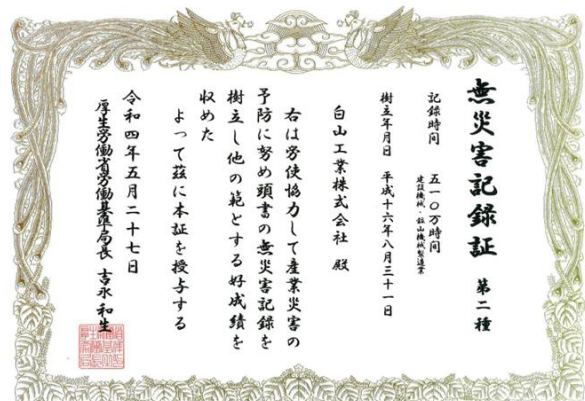 無災害記録証 第二種
記録時間 五一〇万時間
建設機械・鉱山機械製造業
樹立年月日 平成十六年八月三十一日
白山工業株式会社 殿
右は労使協力して産業災害の
予防に努め頭書の無災害記録を
樹立し他の範とする好成績を
収めた
よって茲に本証を授与する
令和四年五月二十七日
厚生労働省労働基準局長 吉永和生